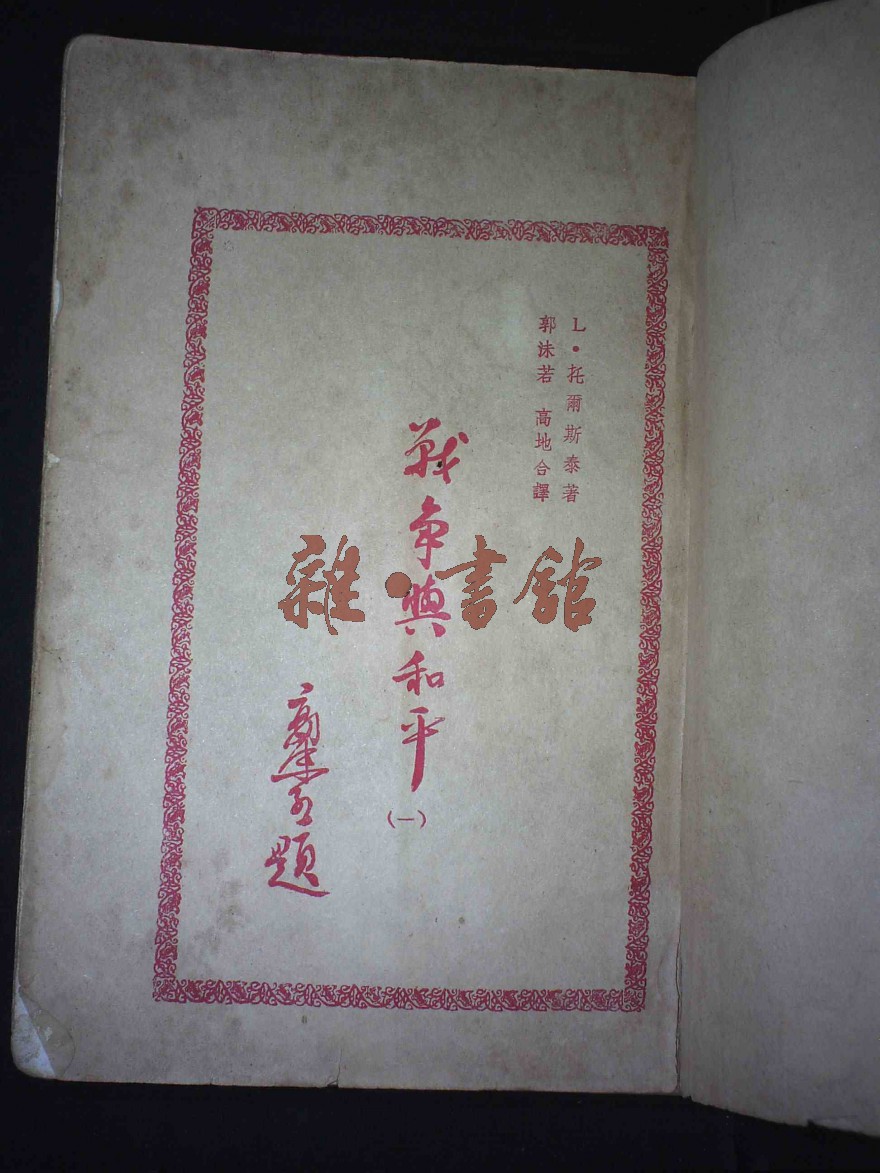 L・托爾斯泰著
郭沫若 高地合譯
戰争與和平
(一)
題
雜・書館